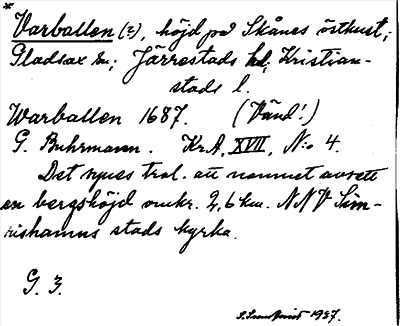 * Varballen (?), höjd på Skånes östkust;
Gladsax sn; Järrestads hd; Kristian-
stads l.
Warballen 1687. (Vänd!)
G. Buhrmann. Kr.A, XVII, N:o 4.
Det synes trol. att namnet avsett
en bergshöjd omkr. 2,6 km. NNV Sim-
rishamns stads kyrka.
G. 3.
1937.